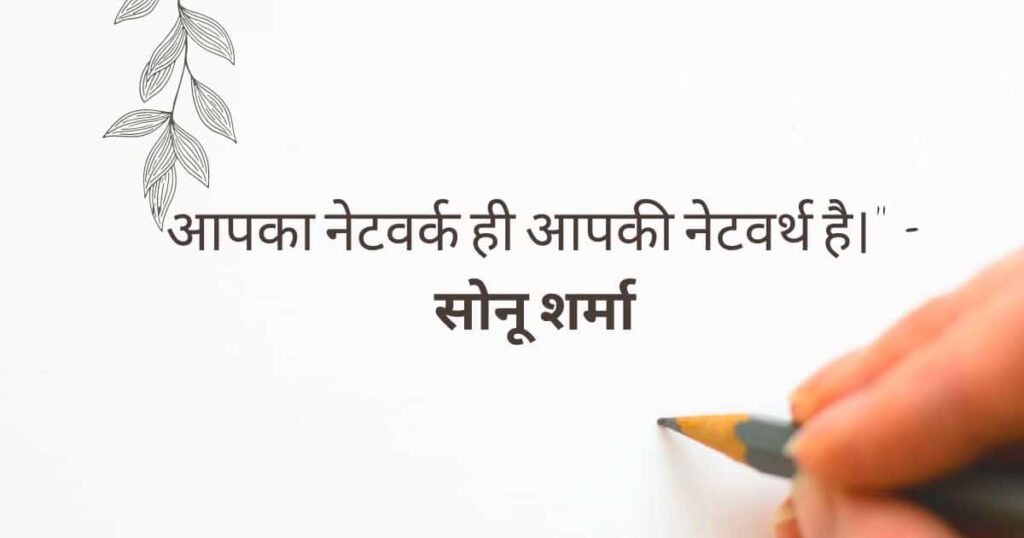 आपका नेटवर्क ही आपकी नेटवर्थ है।" -
सोनू शर्मा